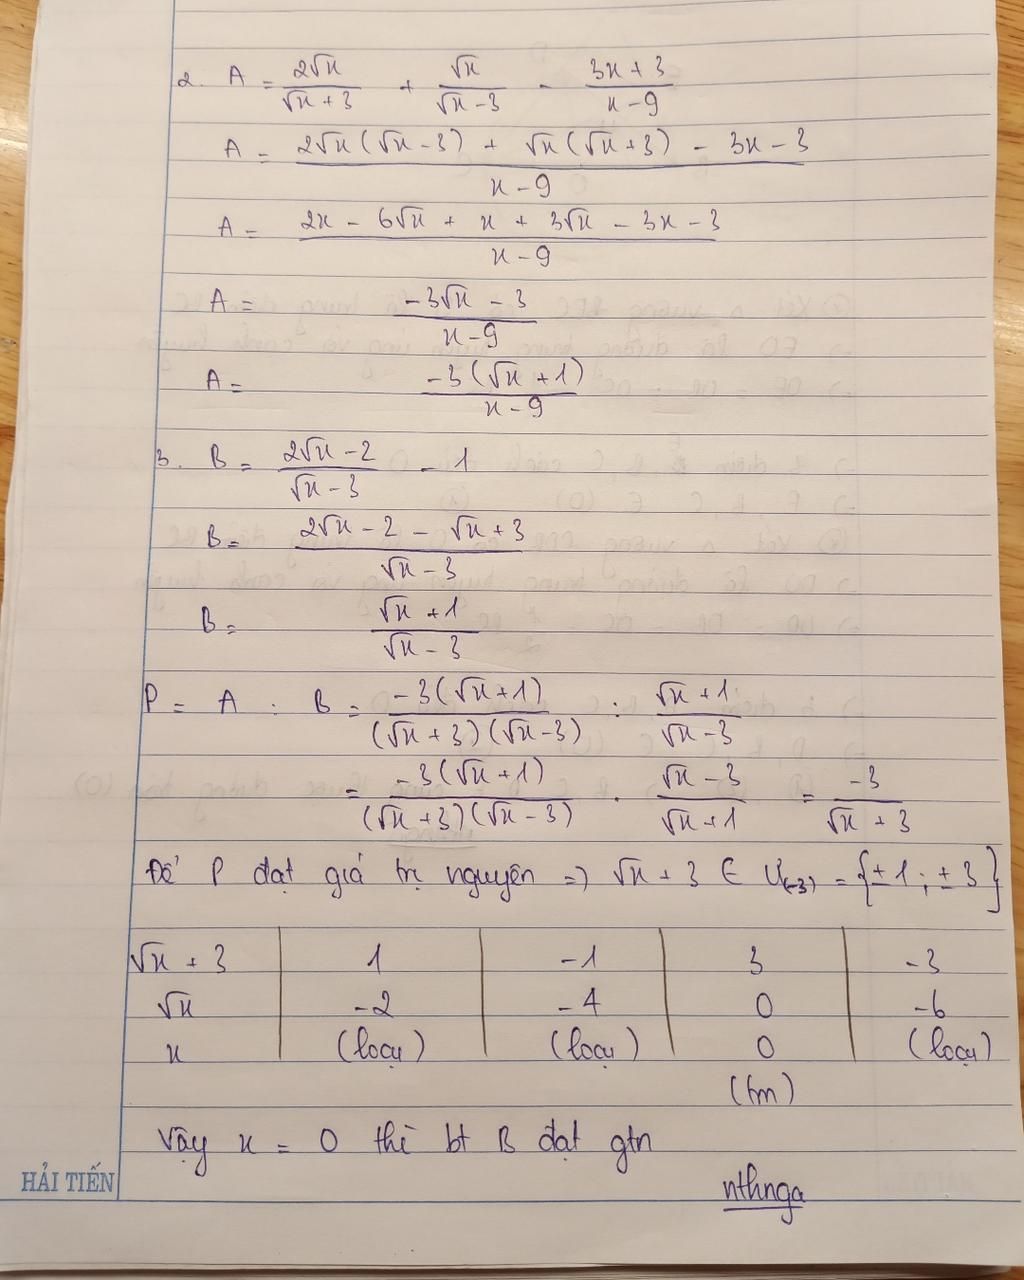 2. A = 2√x/(√x + 3) + √x/(√x - 3) - (3x + 3)/(x - 9)
A = (2√x(√x - 3) + √x(√x + 3) - 3x - 3)/(x - 9)
A = (2x - 6√x + x + 3√x - 3x - 3)/(x - 9)
A = (-3√x - 3)/(x - 9)
A = -3(√x + 1)/(x - 9)
3. B = (2√x - 2)/(√x - 3) - 1
B = (2√x - 2 - √x + 3)/(√x - 3)
B = (√x + 1)/(√x - 3)
P = A : B = -3(√x + 1)/((√x + 3)(√x - 3)) : (√x + 1)/(√x - 3)
= -3(√x + 1)/((√x + 3)(√x - 3)) . (√x - 3)/(√x + 1) = -3/(√x + 3)
Để P đạt giá trị nguyên => √x + 3 ∈ Ư(-3) = {±1; ±3}
√x + 3 1 -1 3 -3
√x -2 -4 0 -6
x (loại) (loại) 0 (loại)
(tm)
Vậy x = 0 thì bt B đạt gtn
nthnga
HẢI TIẾN